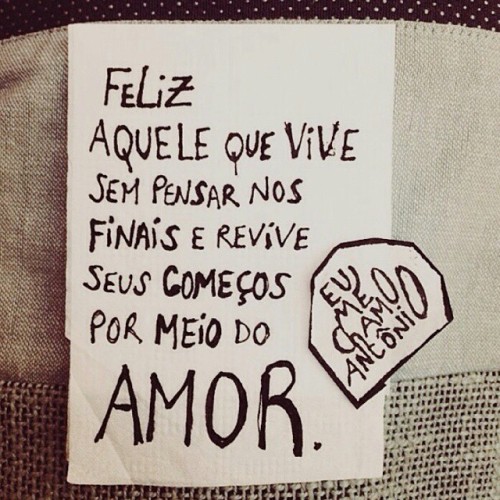 FELIZ
AQUELE QUE VIVE
SEM PENSAR NOS
FINAIS E REVIVE
SEUS COMEÇOS
POR MEIO DO
AMOR.
EU
ME
CHAMO
ANTÔNIO